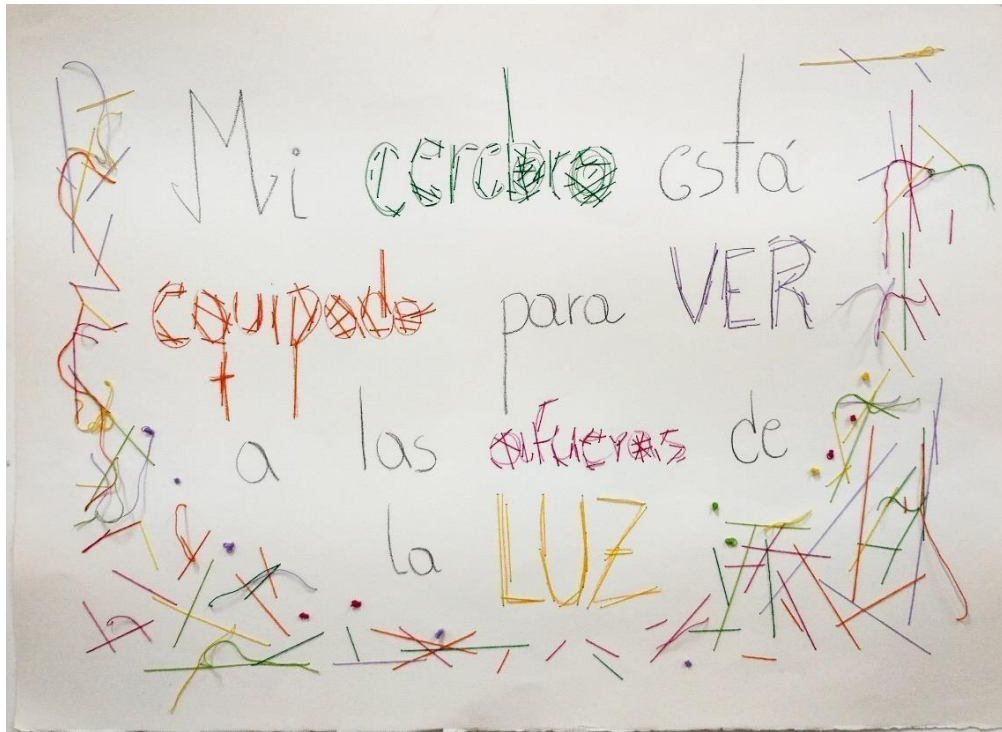 Mi cerebro está
equipado para VER
a las afueras de
la LUZ